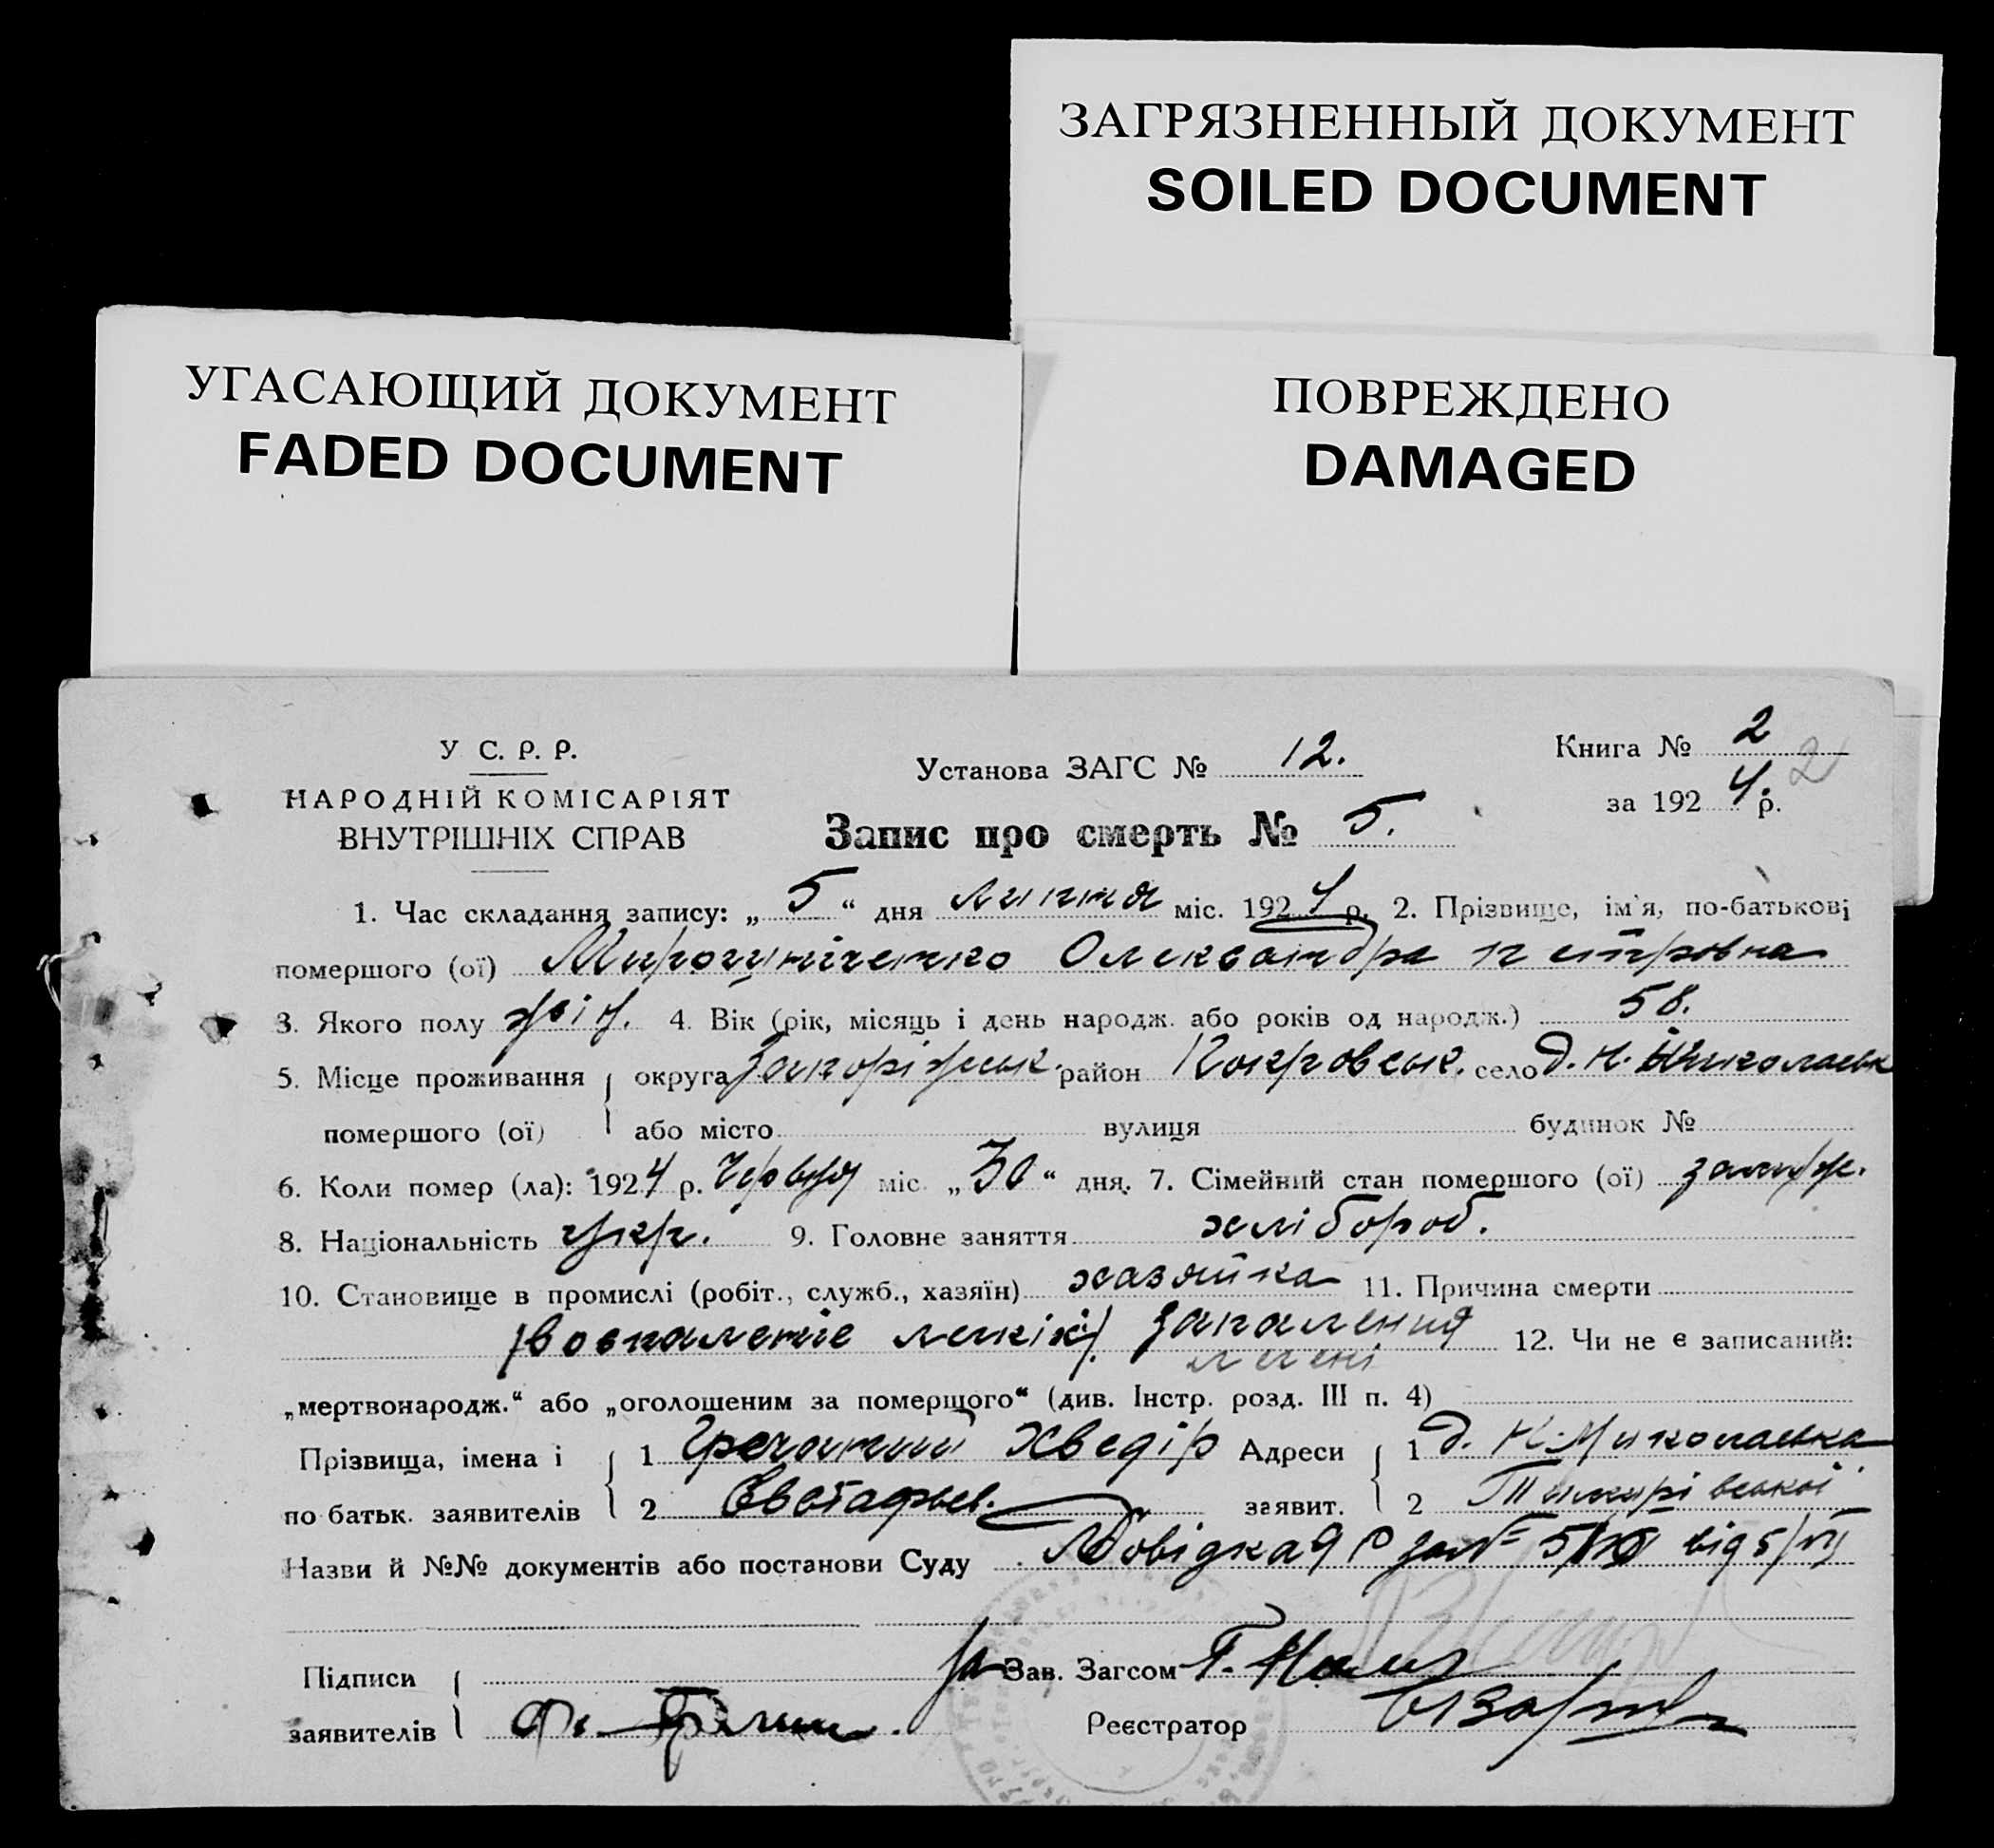 ЗАГРЯЗНЕННЫЙ ДОКУМЕНТ
SOILED DOCUMENT
УГАСАЮЩИЙ ДОКУМЕНТ
FADED DOCUMENT
ПОВРЕЖДЕНО
DAMAGED
У С. Р. Р.
НАРОДНІЙ КОМІСАРІЯТ
ВНУТРІШНІХ СПРАВ
Установа ЗАГС № 12.
Книга № 2 2
за 1924 р.
Запис про смерть № 5.
1. Час складання запису: „ 5 “ дня липня міс. 1924 р. 2. Прізвище, ім'я, по-батькові
помершого (ої) Олександра Петровна
3. Якого полу жін. 4. Вік (рік, місяць і день народж. або років од народж.) 58.
5. Місце проживання округа Запоріжськ. район Покровськ. село
помершого (ої) або місто вулиця будинок №
6. Коли помер (ла): 1924 р. Червня міс. „ 30 “ дня. 7. Сімейний стан помершого (ої) замуж.
8. Національність укр. 9. Головне заняття хлібороб.
10. Становище в промислі (робіт., служб., хазяїн) хазяйка 11. Причина смерти
(воспаление легкіх). Запалення 12. Чи не є записаний:
легені
„мертвонародж.“ або „оголошеним за помершого“ (див. Інстр. розд. III п. 4)
Прізвища, імена і 1 Гречаний Хведір Адреси 1 д. Н. Миколаевка
по батьк. заявителів 2 Евстафьев. заявит. 2
Назви й №№ документів або постанови Суду Довідка від 5/VII
Підписи За Зав. Загсом
заявителів Реєстратор